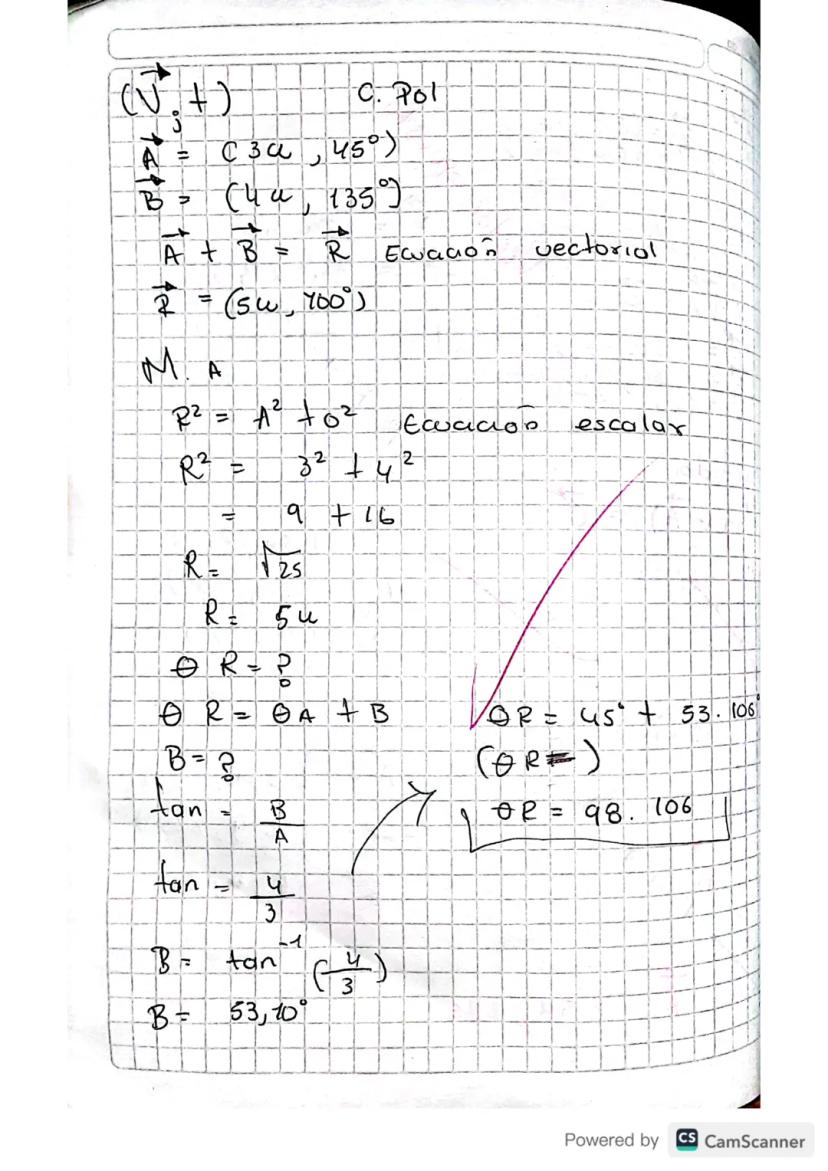 (V⃗, t) C. Pol
A⃗ = (3u, 45°)
B⃗ = (4u, 135°)
A⃗ + B⃗ = R⃗ Ecuación vectorial
R⃗ = (5u, 100°)
M. A
R² = A² + O² Ecuación escalar
R² = 3² + 4²
= 9 + 16
R = √25
R = 5u
θ R = ?
θ R = θA + B
B = ?
tan = B/A
tan = 4/3
B = tan⁻¹ (4/3)
B = 53,10°
θR = 45° + 53.106°
(θR=)
θR = 98.106
Powered by CS CamScanner